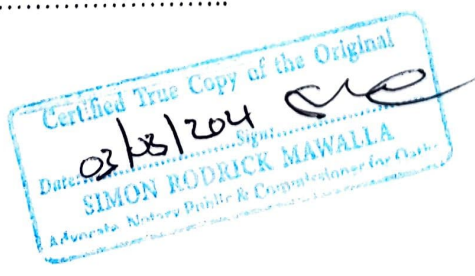 Certified True Copy of the Original
Date:................Sign:................
SIMON RODRICK MAWALLA
Advocate, Notary Public & Commissioner for Oaths